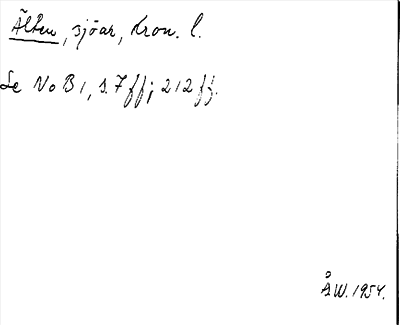 Älten, sjöar, Kron. l.
Se NoB 1, s. 7 ff; 212 ff.
ÅW. 1954.